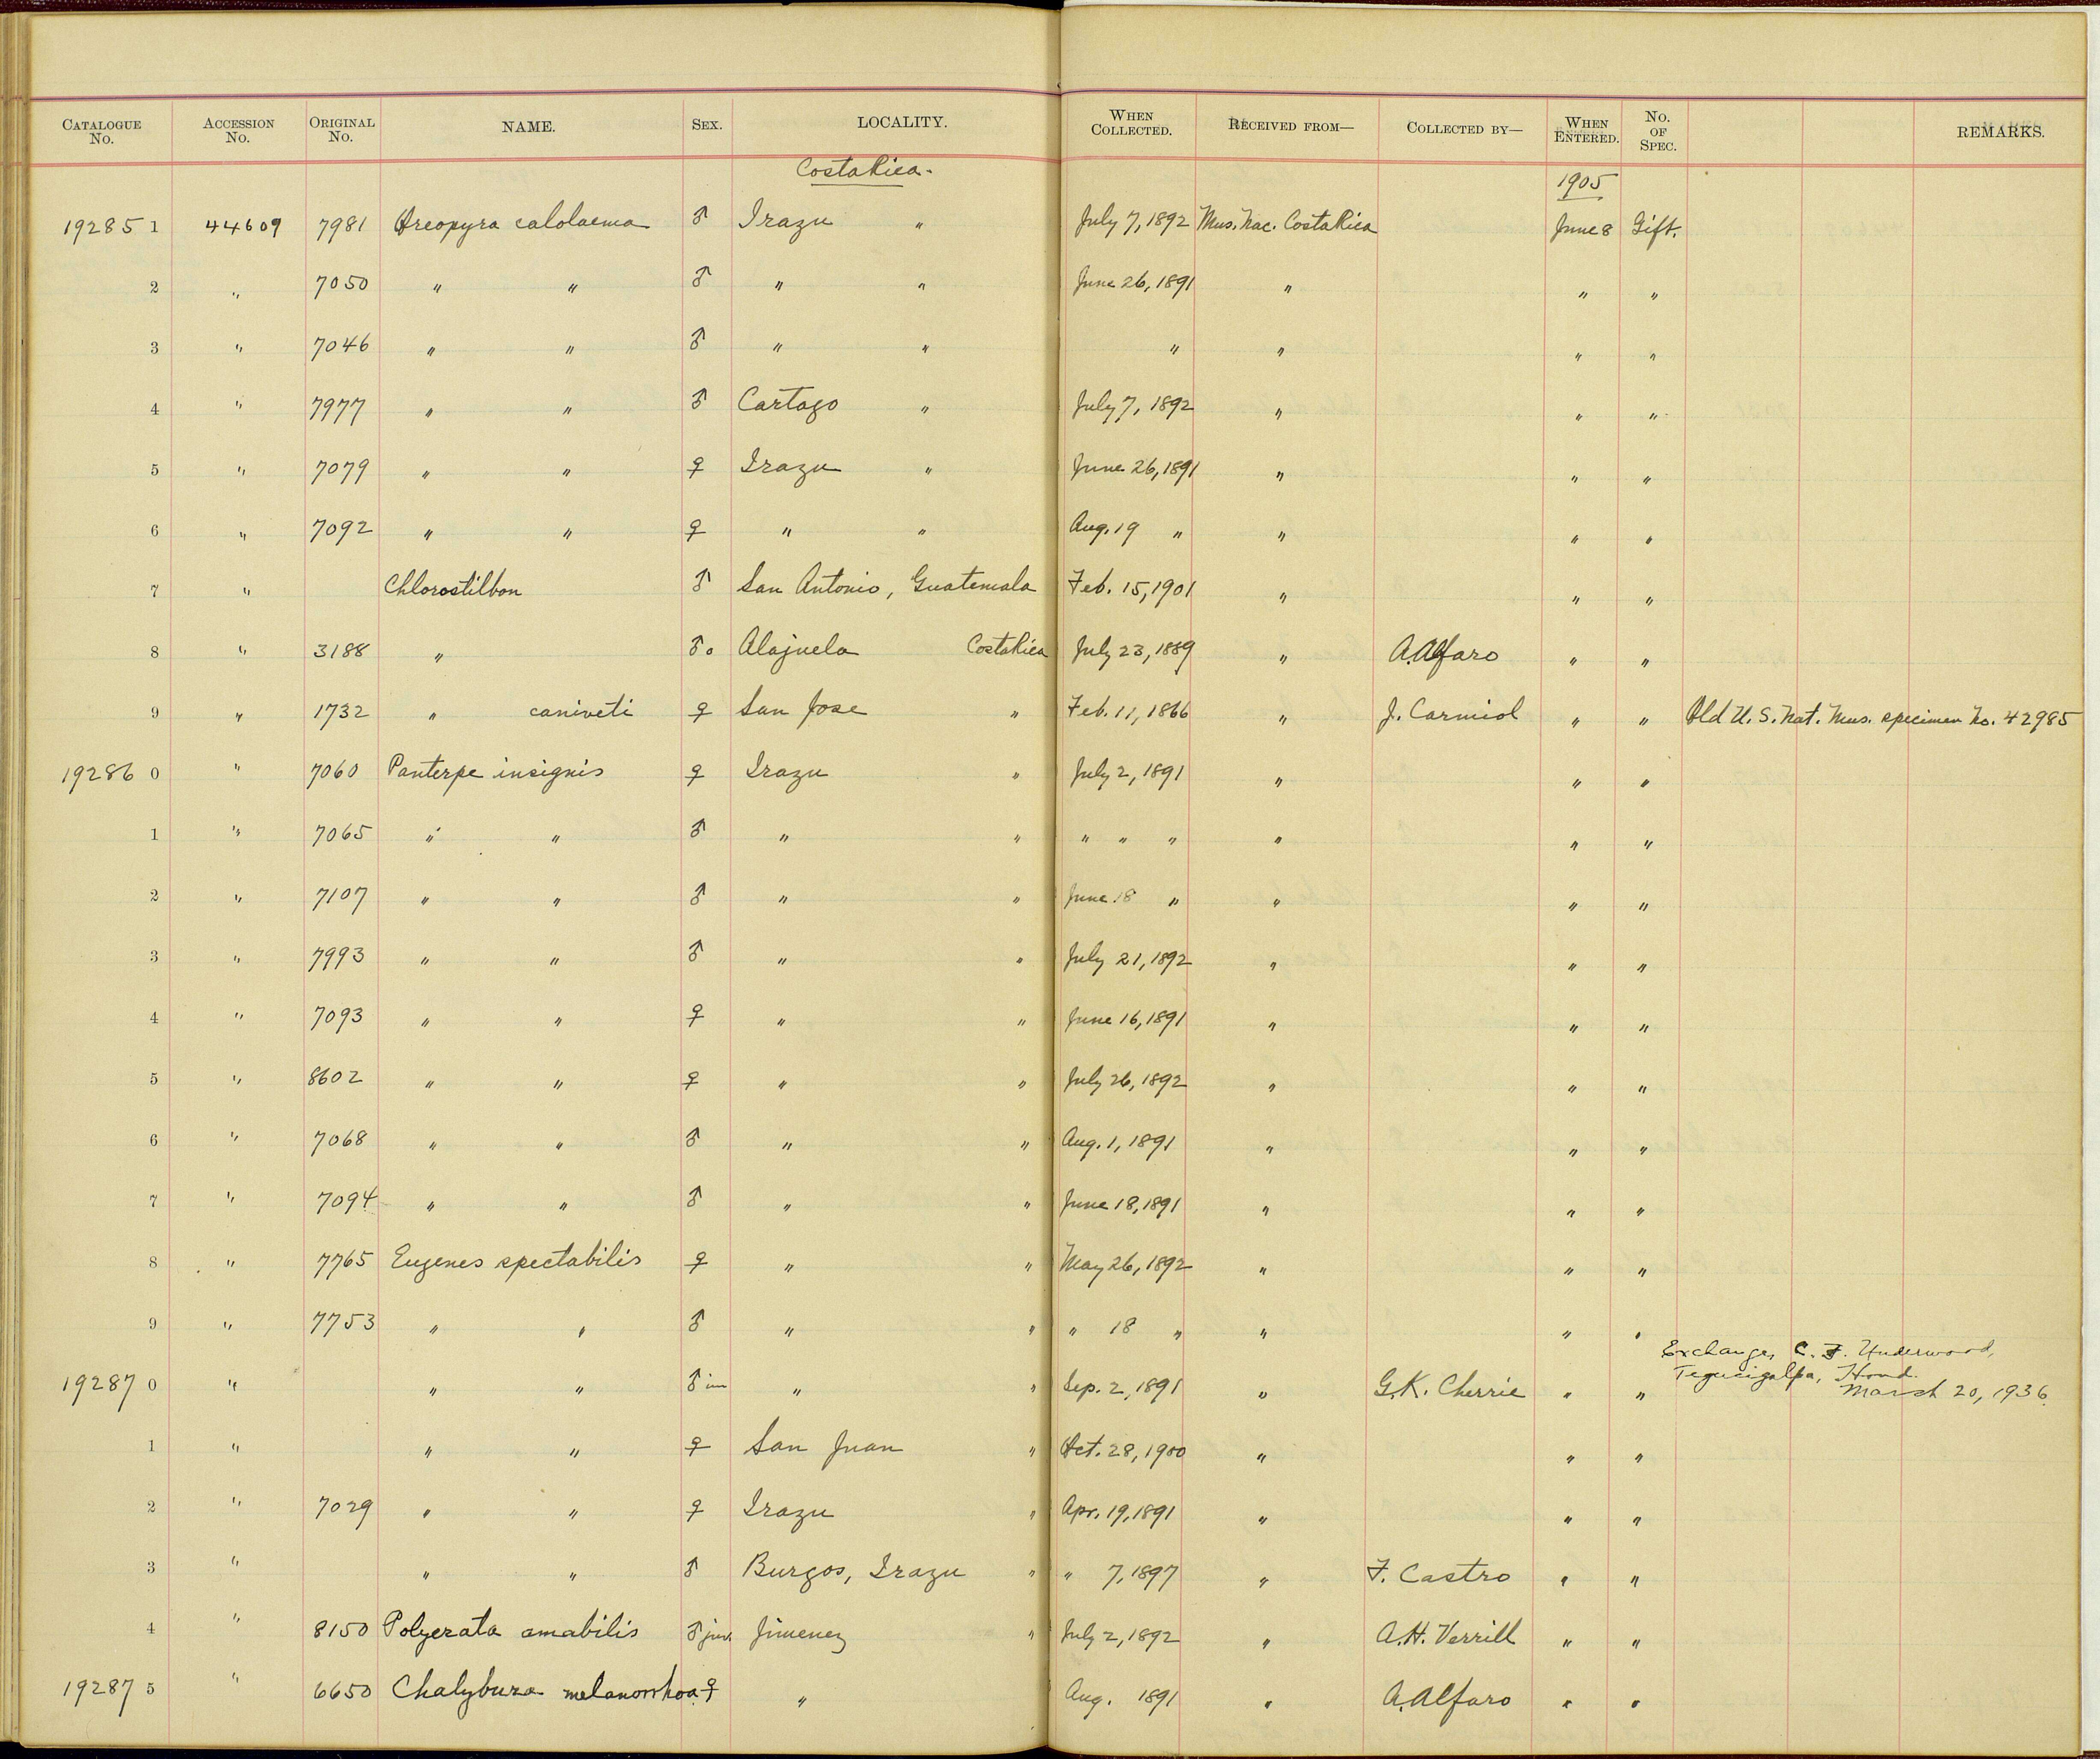 CATALOGUE No. ACCESSION No. ORIGINAL No. NAME. SEX. LOCALITY. WHEN COLLECTED. RECEIVED FROM— COLLECTED BY— WHEN ENTERED. No. OF SPEC. REMARKS.
Costa Rica. 1905
19285 1 44609 7981 Oreopyra calolaema ♂ Irazu " July 7, 1892 Mus. Nac. Costa Rica June 8 Gift.
2 " 7050 " " ♂ " " June 26, 1891 " " "
3 " 7046 " " ♂ " " " " " "
4 " 7977 " " ♂ Cartago " July 7, 1892 " " "
5 " 7079 " " ♀ Irazu " June 26, 1891 " " "
6 " 7092 " " ♀ " " Aug. 19 " " " "
7 " Chlorostilbon ♂ San Antonio, Guatemala Feb. 15, 1901 " " "
8 " 3188 " ♂o Alajuela Costa Rica July 23, 1889 " A. Alfaro " "
9 " 1732 " caniveti ♀ San Jose " Feb. 11, 1866 " J. Carmiol " " Old U.S. Nat. Mus. specimen No. 42985
19286 0 " 7060 Panterpe insignis ♀ Irazu " July 2, 1891 " " "
1 " 7065 " " ♂ " " " " " " " "
2 " 7107 " " ♂ " " June 18 " " " "
3 " 7993 " " ♂ " " July 21, 1892 " " "
4 " 7093 " " ♀ " " June 16, 1891 " " "
5 " 8602 " " ♀ " " July 26, 1892 " " "
6 " 7068 " " ♂ " " Aug. 1, 1891 " " "
7 " 7094 " " ♂ " " June 18, 1891 " " "
8 " 7765 Eugenes spectabilis ♀ " " May 26, 1892 " " "
9 " 7753 " " ♂ " " " 18 " " " "
Exchange, C. F. Underwood,
Tegucigalpa, Hond.
19287 0 " " " ♂ im " " Sep. 2, 1891 " G.K. Cherrie " " March 20, 1936.
1 " " " ♀ San Juan " Oct. 28, 1900 " " "
2 " 7029 " " ♀ Irazu " Apr. 19, 1891 " " "
3 " " " ♂ Burgos, Irazu " " 7, 1897 " F. Castro " "
4 " 8150 Polyerata amabilis ♂ juv. Jimenez " July 2, 1892 " A.H. Verrill " "
19287 5 " 6650 Chalybura melanorrhoa ♀ " Aug. 1891 " A. Alfaro " "